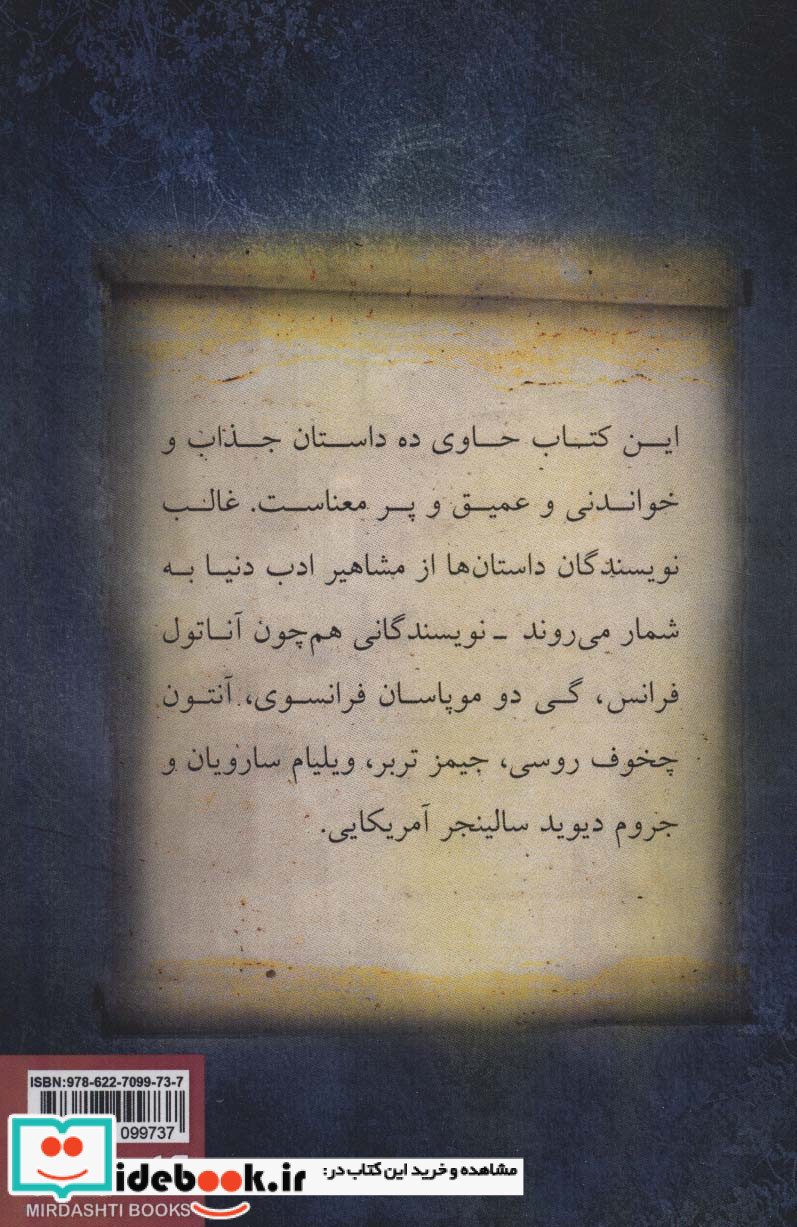 این کتاب حاوی ده داستان جذاب و
خواندنی و عمیق و پر معناست. غالب
نویسندگان داستان‌ها از مشاهیر ادب دنیا به
شمار می‌روند ـ نویسندگانی هم‌چون آناتول
فرانس، گی دو موپاسان فرانسوی، آنتون
چخوف روسی، جیمز تربر، ویلیام سارویان و
جروم دیوید سالینجر آمریکایی.
ISBN:978-622-7099-73-7
099737
مشاهده و خرید این کتاب در:
idebook.ir
MIRDASHTI BOOKS